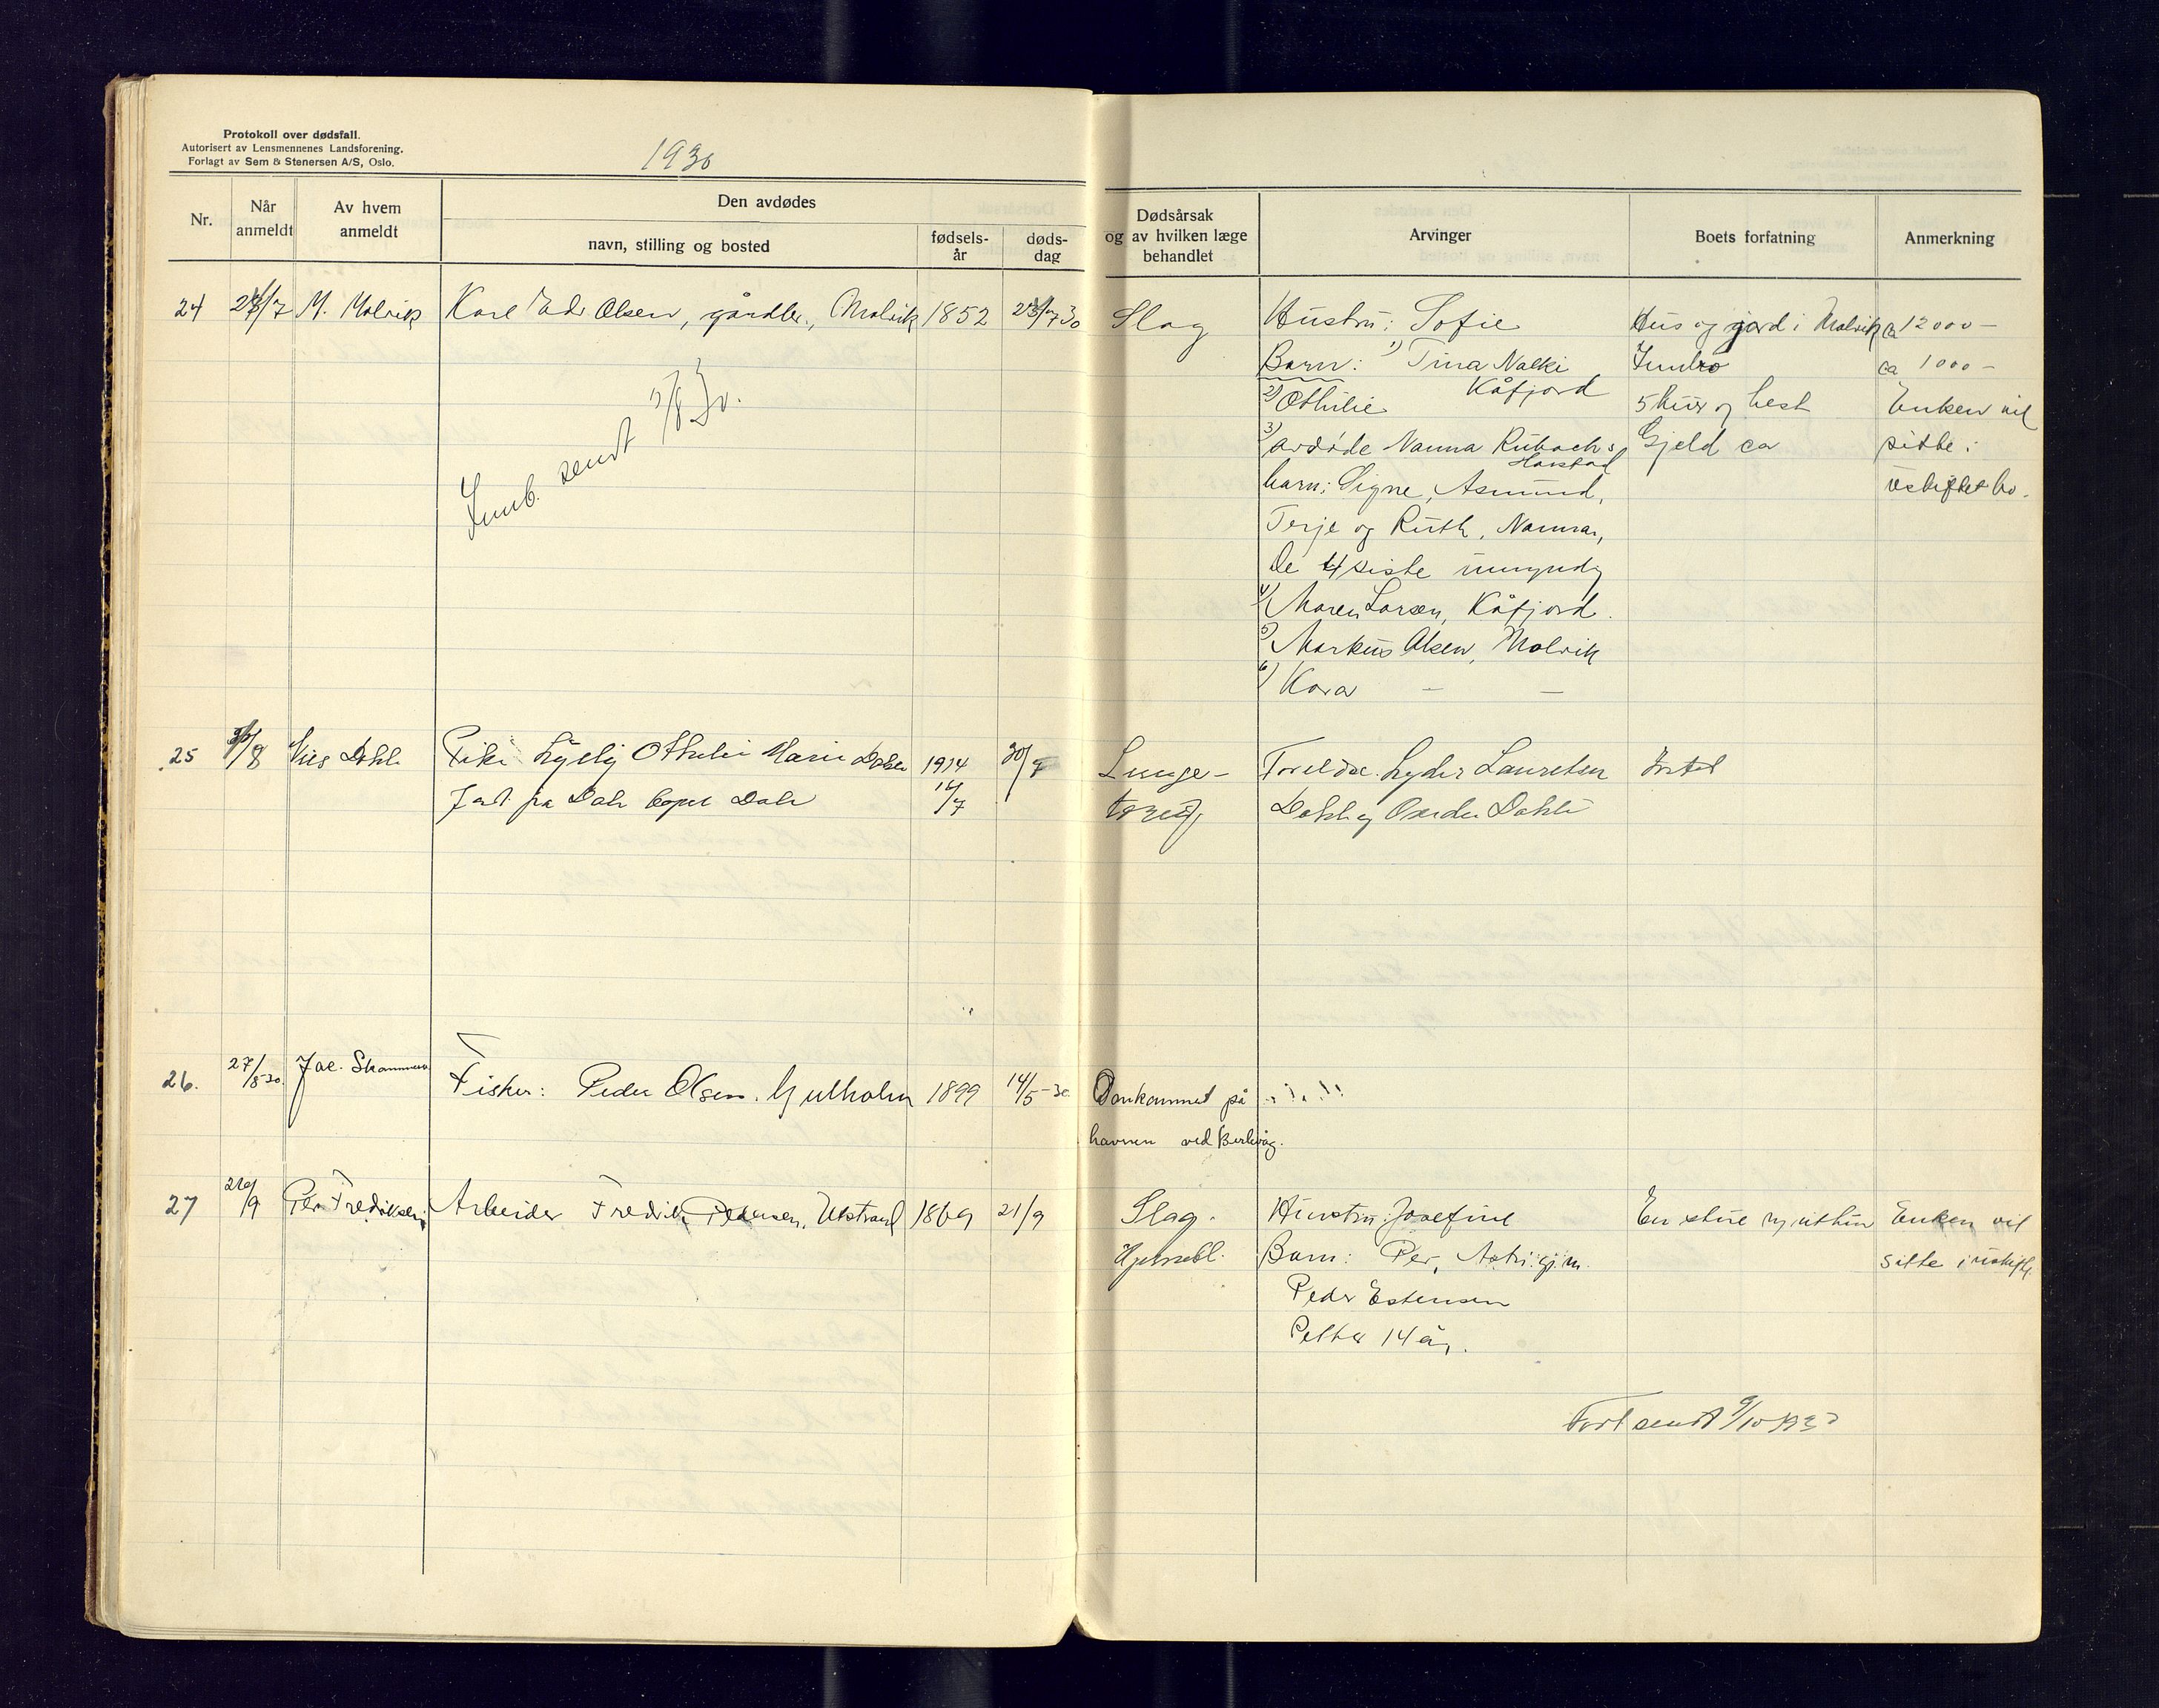 Protokoll over dødsfall.
Autorisert av Lensmennenes Landsforening.
Forlagt av Sem & Stenersen A/S, Oslo.
1930
Nr.
Når anmeldt
Av hvem anmeldt
Den avdødes
navn, stilling og bosted
fødsels-år
døds-dag
Dødsårsak og av hvilken læge behandlet
Arvinger
Boets forfatning
Anmerkning
24 M. Molvik Karl Edv Olsen, gårdbr., Molvik 1852
Slag
Hustru: Sofie
Barn: 1) Tina Nalki
Kåfjord
2) Othilie
3) avdøde Nanna Rubach's
Harstad
barn: Signe, Asmund,
Terje og Ruth, Nanna,
De 4 siste umyndig
4) Maren Larsen, Kåfjord.
5) Markus Olsen, Molvik
6) Kara — —
Hus og jord i Molvik ca 12000 —
Innbo ca 1000 —
5 kur og hest
Gjeld ca
Enken vil
sitte i
uskiftet bo.
Innb. sendt 5/8 30.
25 Nils Dahl Pike Othilie Marie Dahl 1914 30/7
fød. fra Dale Dale 14/7
Lunge-
Foreldre: Lyder Lauretsen
Dahl og Dahl
Intet
26. 27/8-30. Jac. Fisker: Peder Olsen. Gulholm 1899 14/5-30
Omkommet på
havnen ved Berlevåg.
27 Per Fredriksen Arbeider Fredrik Pedersen, 1869 21/9
Slag.
Hjernebl.
Hustru: Josefine
Barn: Per, g.m.
Peder Estensen
Petter 14 år.
En stue og uthus
Enken vil
sitte i uskiftet
Fort sendt 9/10 1930